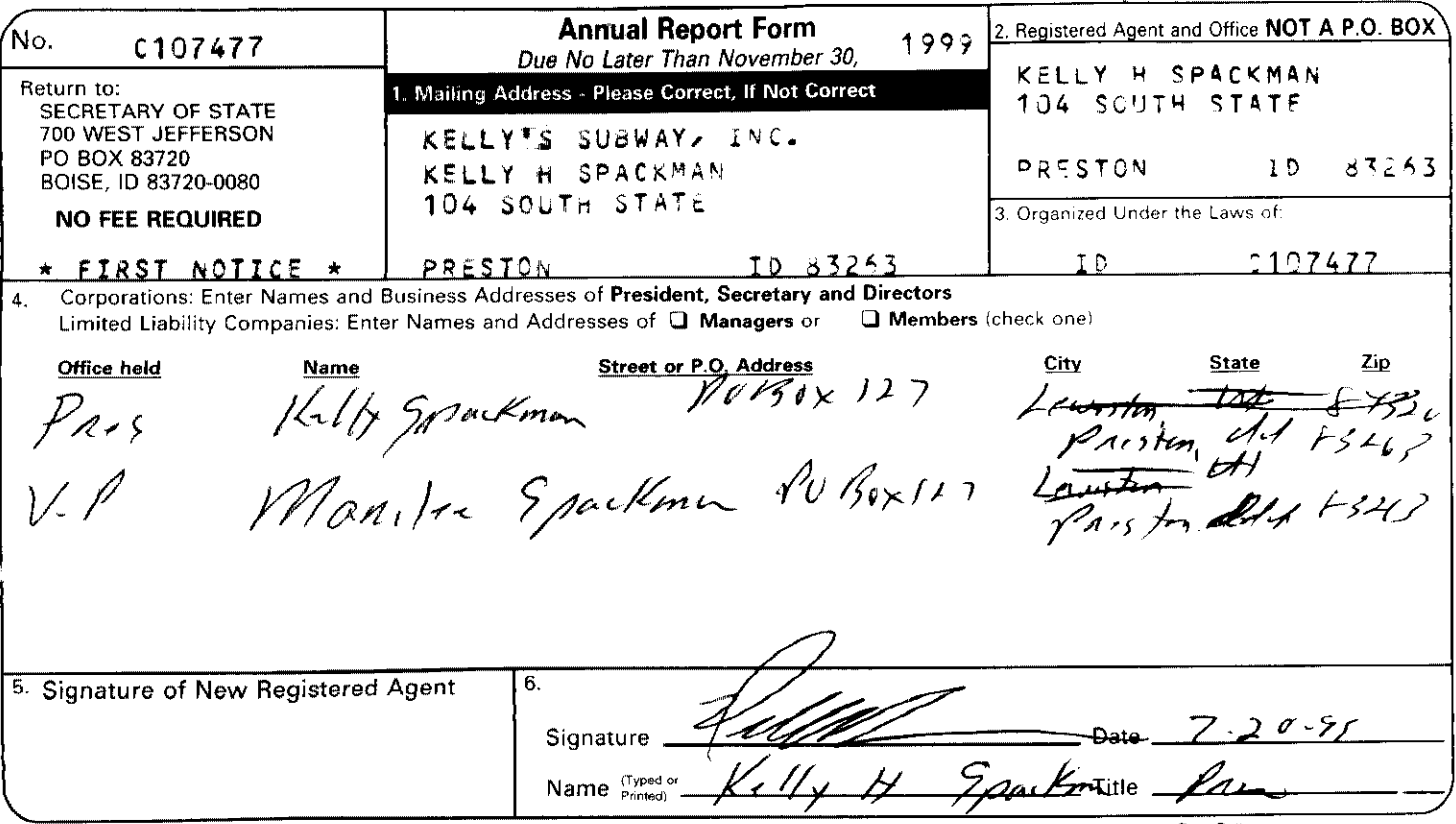 No. C107477
Annual Report Form 1999
Due No Later Than November 30,
Return to:
SECRETARY OF STATE
700 WEST JEFFERSON
PO BOX 83720
BOISE, ID 83720-0080
NO FEE REQUIRED
* FIRST NOTICE *
1. Mailing Address - Please Correct, If Not Correct
KELLY'S SUBWAY, INC.
KELLY H SPACKMAN
104 SOUTH STATE
PRESTON ID 83263
2. Registered Agent and Office NOT A P.O. BOX
KELLY H SPACKMAN
104 SOUTH STATE
PRESTON ID 83263
3. Organized Under the Laws of:
ID C107477
4. Corporations: Enter Names and Business Addresses of President, Secretary and Directors
Limited Liability Companies: Enter Names and Addresses of Managers or Members (check one)
Office held Name Street or P.O. Address City State Zip
Pres Kelly Spackman PO Box 127 Lewiston
Preston, 83263
V-P Spackman PO Box 127 Lewiston UT
Preston 83263
5. Signature of New Registered Agent
6.
Signature Date
Name (Typed or Printed) Kelly H Spackman Title Pres